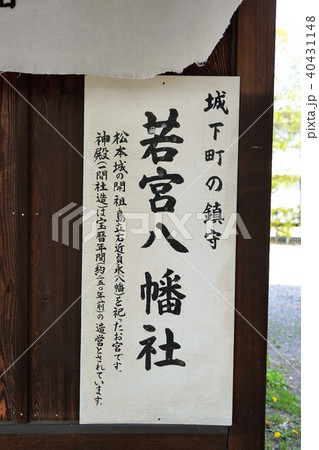 城下町の鎮守
若宮八幡社
松本城の開祖島立右近貞永(八幡)を祀ったお宮です。
神殿(一間社造)は宝暦年間(約二五〇年前)の造営とされています。
PIXTA
pixta.jp - 40431148